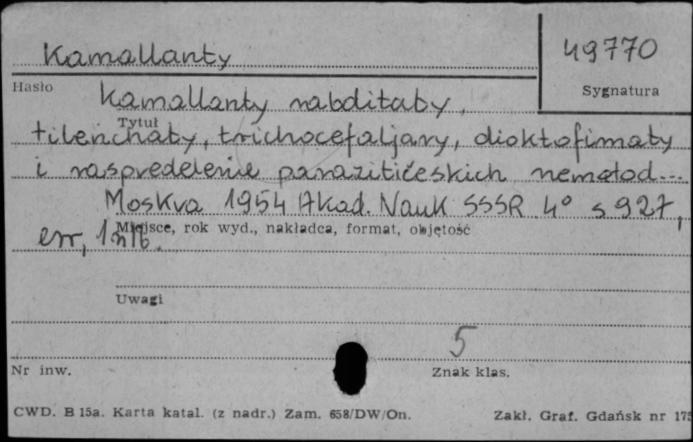 Kamallanty
49770
Hasło
Sygnatura
Kamallanty rabditaty,
Tytuł
tilenchaty, trichocefaljary, dioktofimaty
i raspredelenie parazitičeskich nematod...
Moskva 1954 Akad. Nauk SSSR 4° s 927,
Miejsce, rok wyd., nakładca, format, objętość
err, 1 nlb.
Uwagi
5
Nr inw.
Znak klas.
CWD. B 15a. Karta katal. (z nadr.) Zam. 658/DW/On.
Zakł. Graf. Gdańsk nr 175